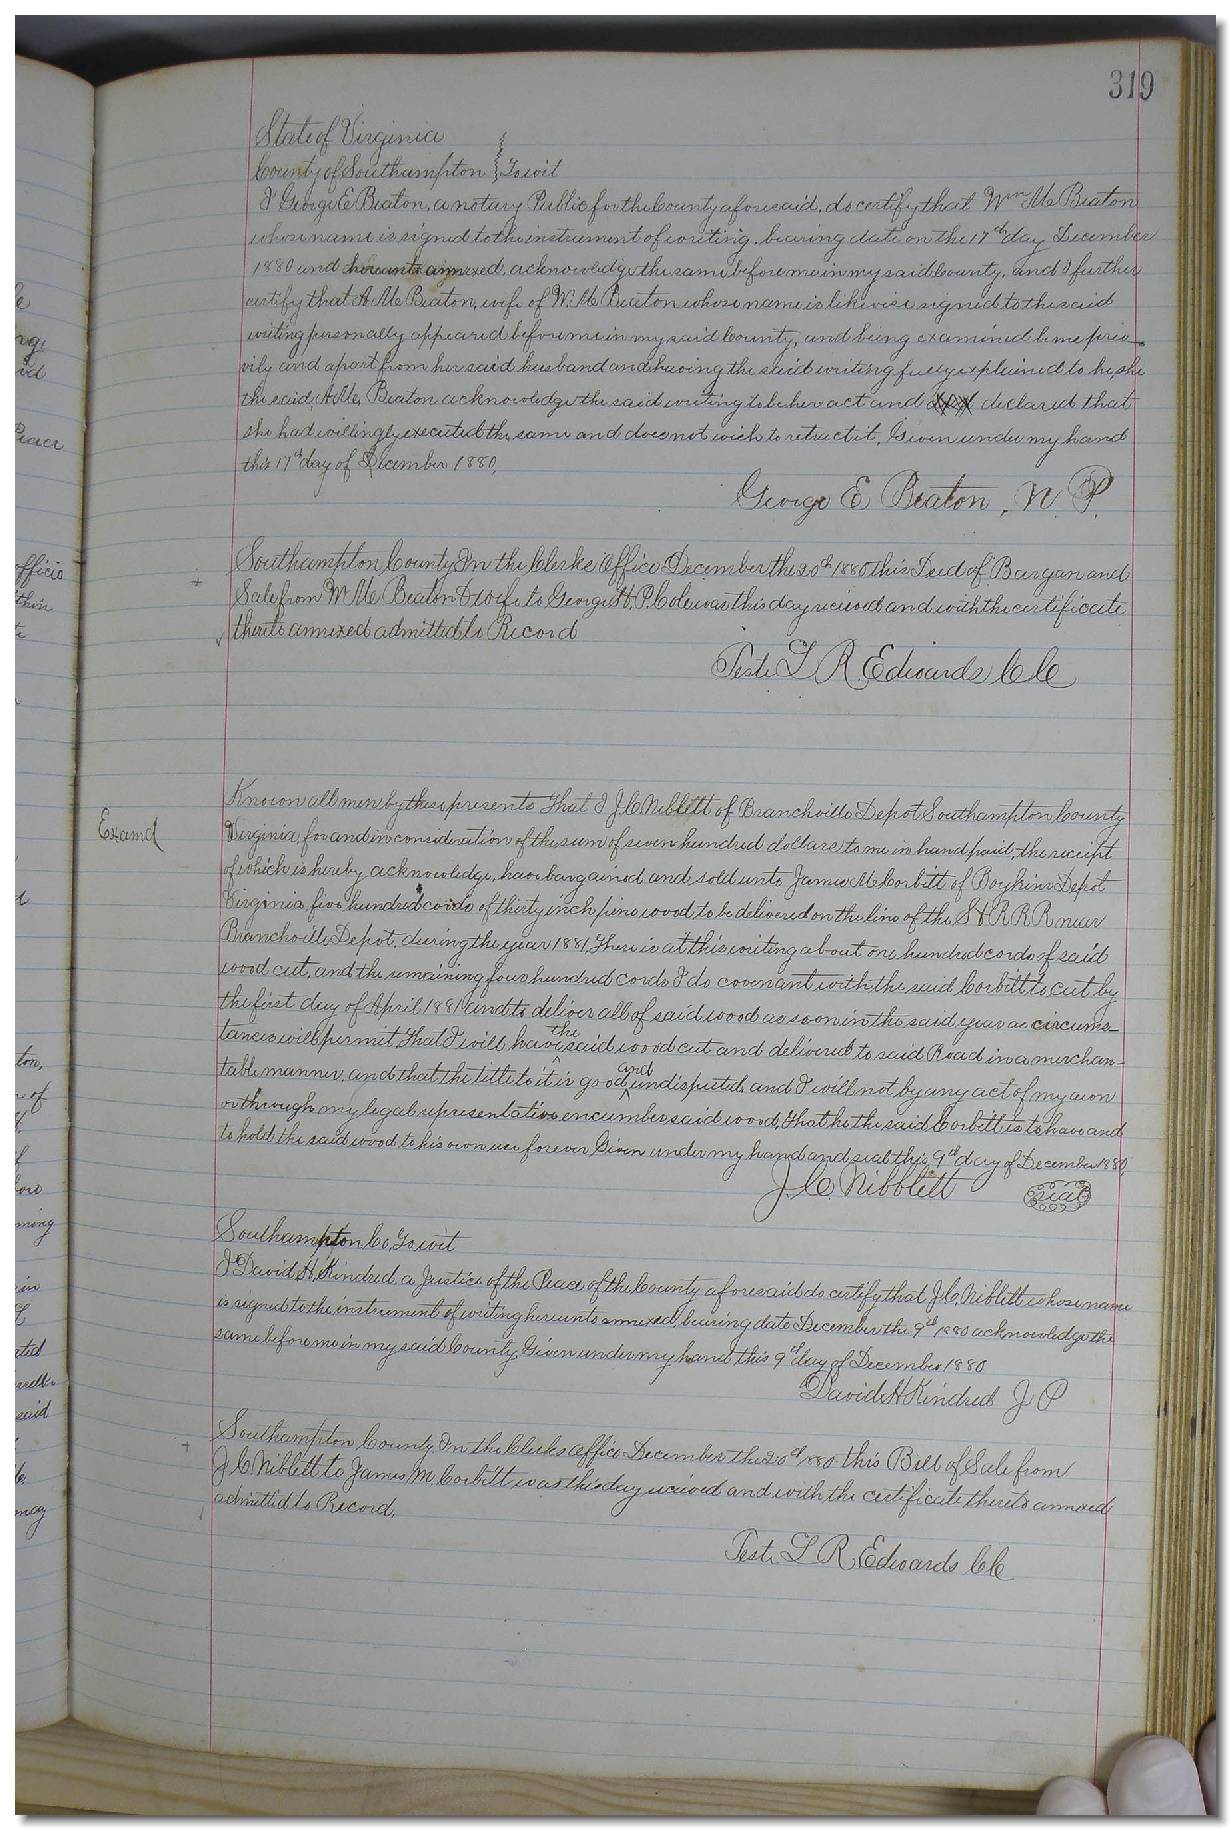 319
State of Virginia
County of Southampton } Towit
I George E Beaton, a notary Public for the County aforesaid, do certify that Wm Mc Beaton
whose name is signed to the instrument of writing, bearing date on the 17th day December
1880 and hereunto annexed, acknowledge the same before me in my said County, and I further
certify that A Mc Beaton, wife of W. Mc Beaton whose name is likewise signed to the said
writing personally appeared before me in my said County, and being examined by me priv-
ily and apart from her said husband and having the said writing fully explained to he, she
the said, A Mc, Beaton acknowledge the said writing to be her act and declared that
she had willingly executed the same and does not wish to retract it, Given under my hand
this 17th day of December 1880,
George E Beaton, N. P.
Southampton County In the Clerks Office December the 20th 1880 this Deed of Bargan and
Sale from W Mc Beaton & wife to George H, P. Cole was this day recieved and with the certificate
thereto annexed admitted to Record
Teste L R. Edwards CC
Examd
Known all men by these presents That I J. C Niblett of Branchville Depot Southampton County
Virginia, for and in consideration of the sum of seven hundred dollars, to me in hand paid, the receipt
of which is hereby acknowledge, have bargained and sold unto James M Corbitt of Boykins Depot
Virginia, five hundred cords of thirty inch pine wood to be delivered on the line of the S & R R R near
Branchville Depot, during the year 1881, There is at this writing about one hundred cords of said
wood cut, and the remaining four hundred cords I do covenant with the said Corbitt to cut by
the first day of April 1881 and to deliver all of said wood as soon in the said year as circums-
tances will permit, That I will have the said wood cut and delivered to said Road in a merchan-
table manner, and that the title to it is good and undisputed, and I will not by any act of my own
or through my legal representative encumber said wood, That he the said Corbitt is to have and
to hold the said wood to his own use forever Given under my hand and seal this 9th day of December 1880,
J. C. Nibblett seal
Southampton Co, Towit
I David H, Kindred, a Justice of the Peace of the County aforesaid do certify that J. C. Niblett whose name
is signed to the instrument of writing hereunto annexed, bearing date December the 9th 1880 acknowledge the
same before me in my said County, Given under my hand this 9th day of December 1880
David H Kindred J P
Southampton County In the Clerks Office December the 20th 1880 this Bill of Sale from
J. C Niblett to James, M, Corbitt was this day recieved and with the certificate thereto annexed
admitted to Record.
Teste L R Edwards CC